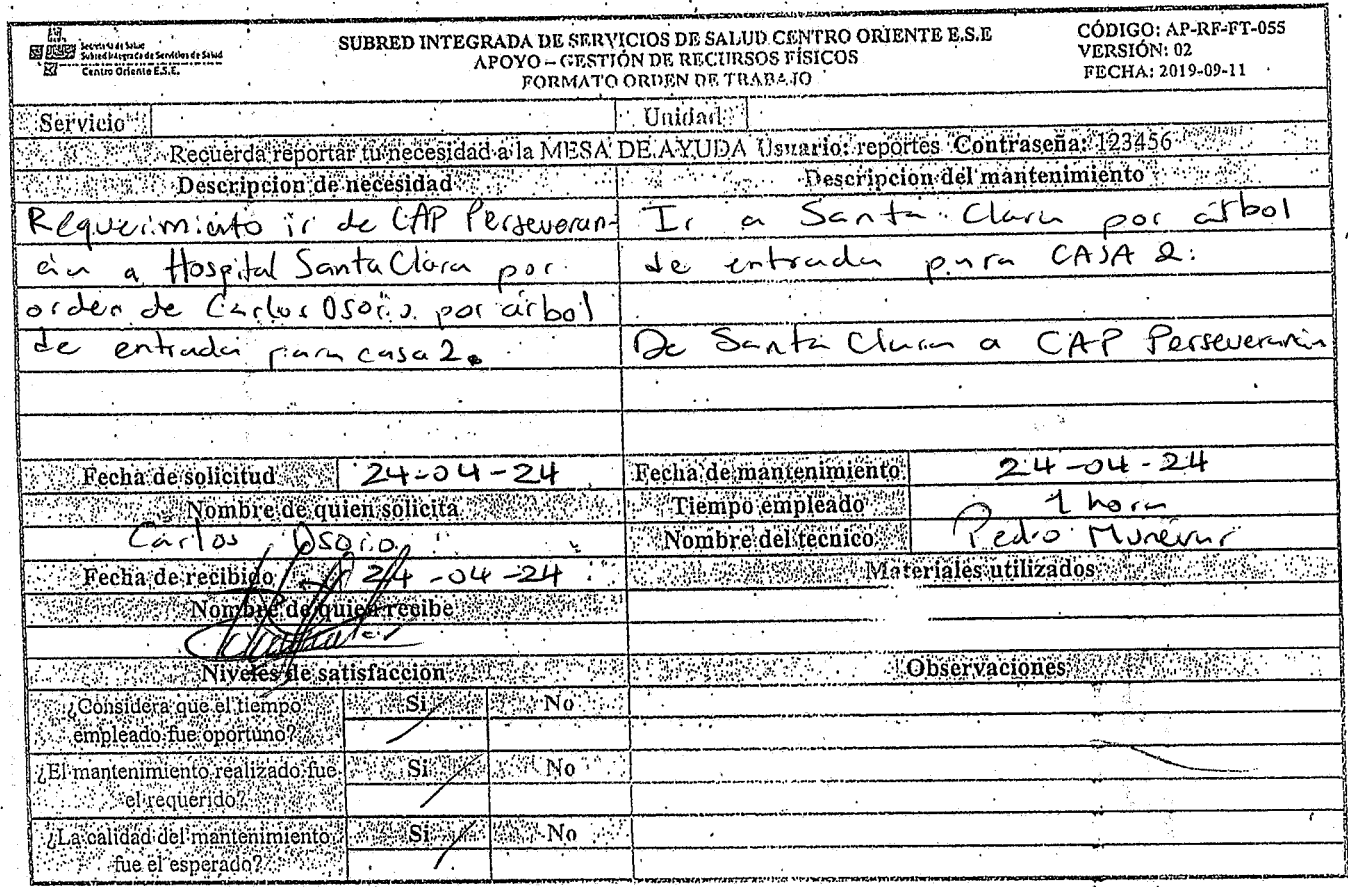 Secretaría de Salud
Subred Integrada de Servicios de Salud
Centro Oriente E.S.E.
SUBRED INTEGRADA DE SERVICIOS DE SALUD CENTRO ORIENTE E.S.E
APOYO – GESTIÓN DE RECURSOS FÍSICOS
FORMATO ORDEN DE TRABAJO
CÓDIGO: AP-RF-FT-055
VERSIÓN: 02
FECHA: 2019-09-11
Servicio Unidad
Recuerda reportar tu necesidad a la MESA DE AYUDA Usuario: reportes Contraseña: 123456
Descripcion de necesidad
Requerimiento ir de CAP Perseveran-
cia a Hospital Santa Clara por
orden de Carlos Osorio por árbol
de entrada para casa 2.
Descripcion del mantenimiento
Ir a Santa Clara por árbol
de entrada para CASA 2.
De Santa Clara a CAP Perseverancia
Fecha de solicitud 24-04-24
Fecha de mantenimiento 24-04-24
Nombre de quien solicita
Tiempo empleado 1 hora
Carlos Osorio
Nombre del tecnico Pedro Munévar
Fecha de recibido 24-04-24
Materiales utilizados
Nombre de quien recibe
Niveles de satisfaccion
Observaciones
¿Considera que el tiempo
empleado fue oportuno?
Si No
¿El mantenimiento realizado fue
el requerido?
Si No
¿La calidad del mantenimiento
fue el esperado?
Si No